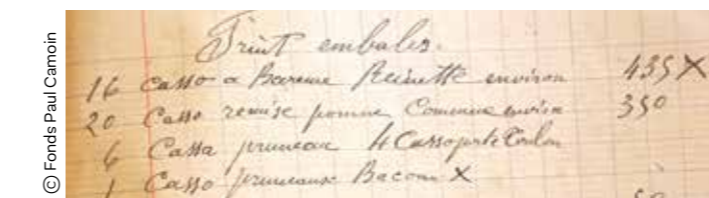 © Fonds Paul Camoin
Fruit embales.
16 Casso a Bareme Reinette environ 435 X
20 Casso remise pomme Commune environ 350
6 Cassa pruneau 4 Casso porte Toulon
1 Casso pruneaux Bacon X
50